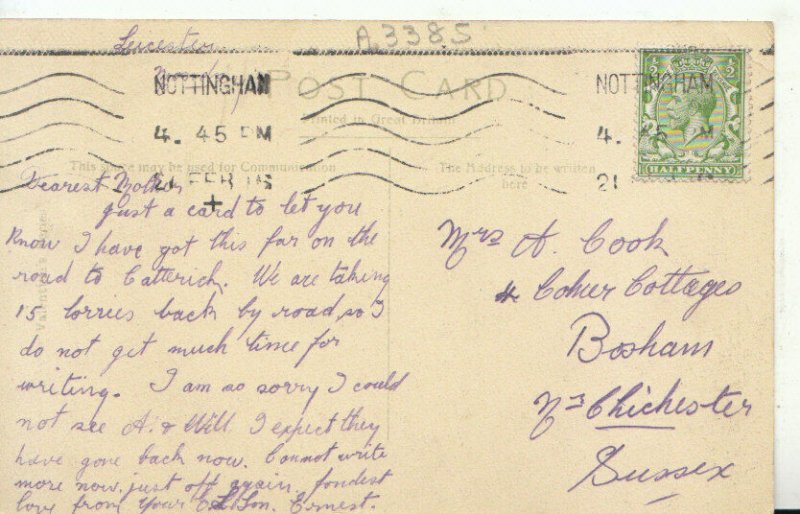 A3385
Leicester
POST CARD
NOTTINGHAM
4. 45 PM
21 FEB 16
NOTTINGHAM
4. 45 PM
21
HALFPENNY
Printed in Great Britain
This space may be used for Communication
The Address to be written
here
Dearest Mother
just a card to let you
know I have got this far on the
road to Catterick. We are taking
15 lorries back by road, so I
do not get much time for
writing. I am so sorry I could
not see A. & Will I expect they
have gone back now. Cannot write
more now, just off again. fondest
love from Your Son. Ernest.
Mrs A. Cook
Cottages
Bosham
Nr Chichester
Sussex